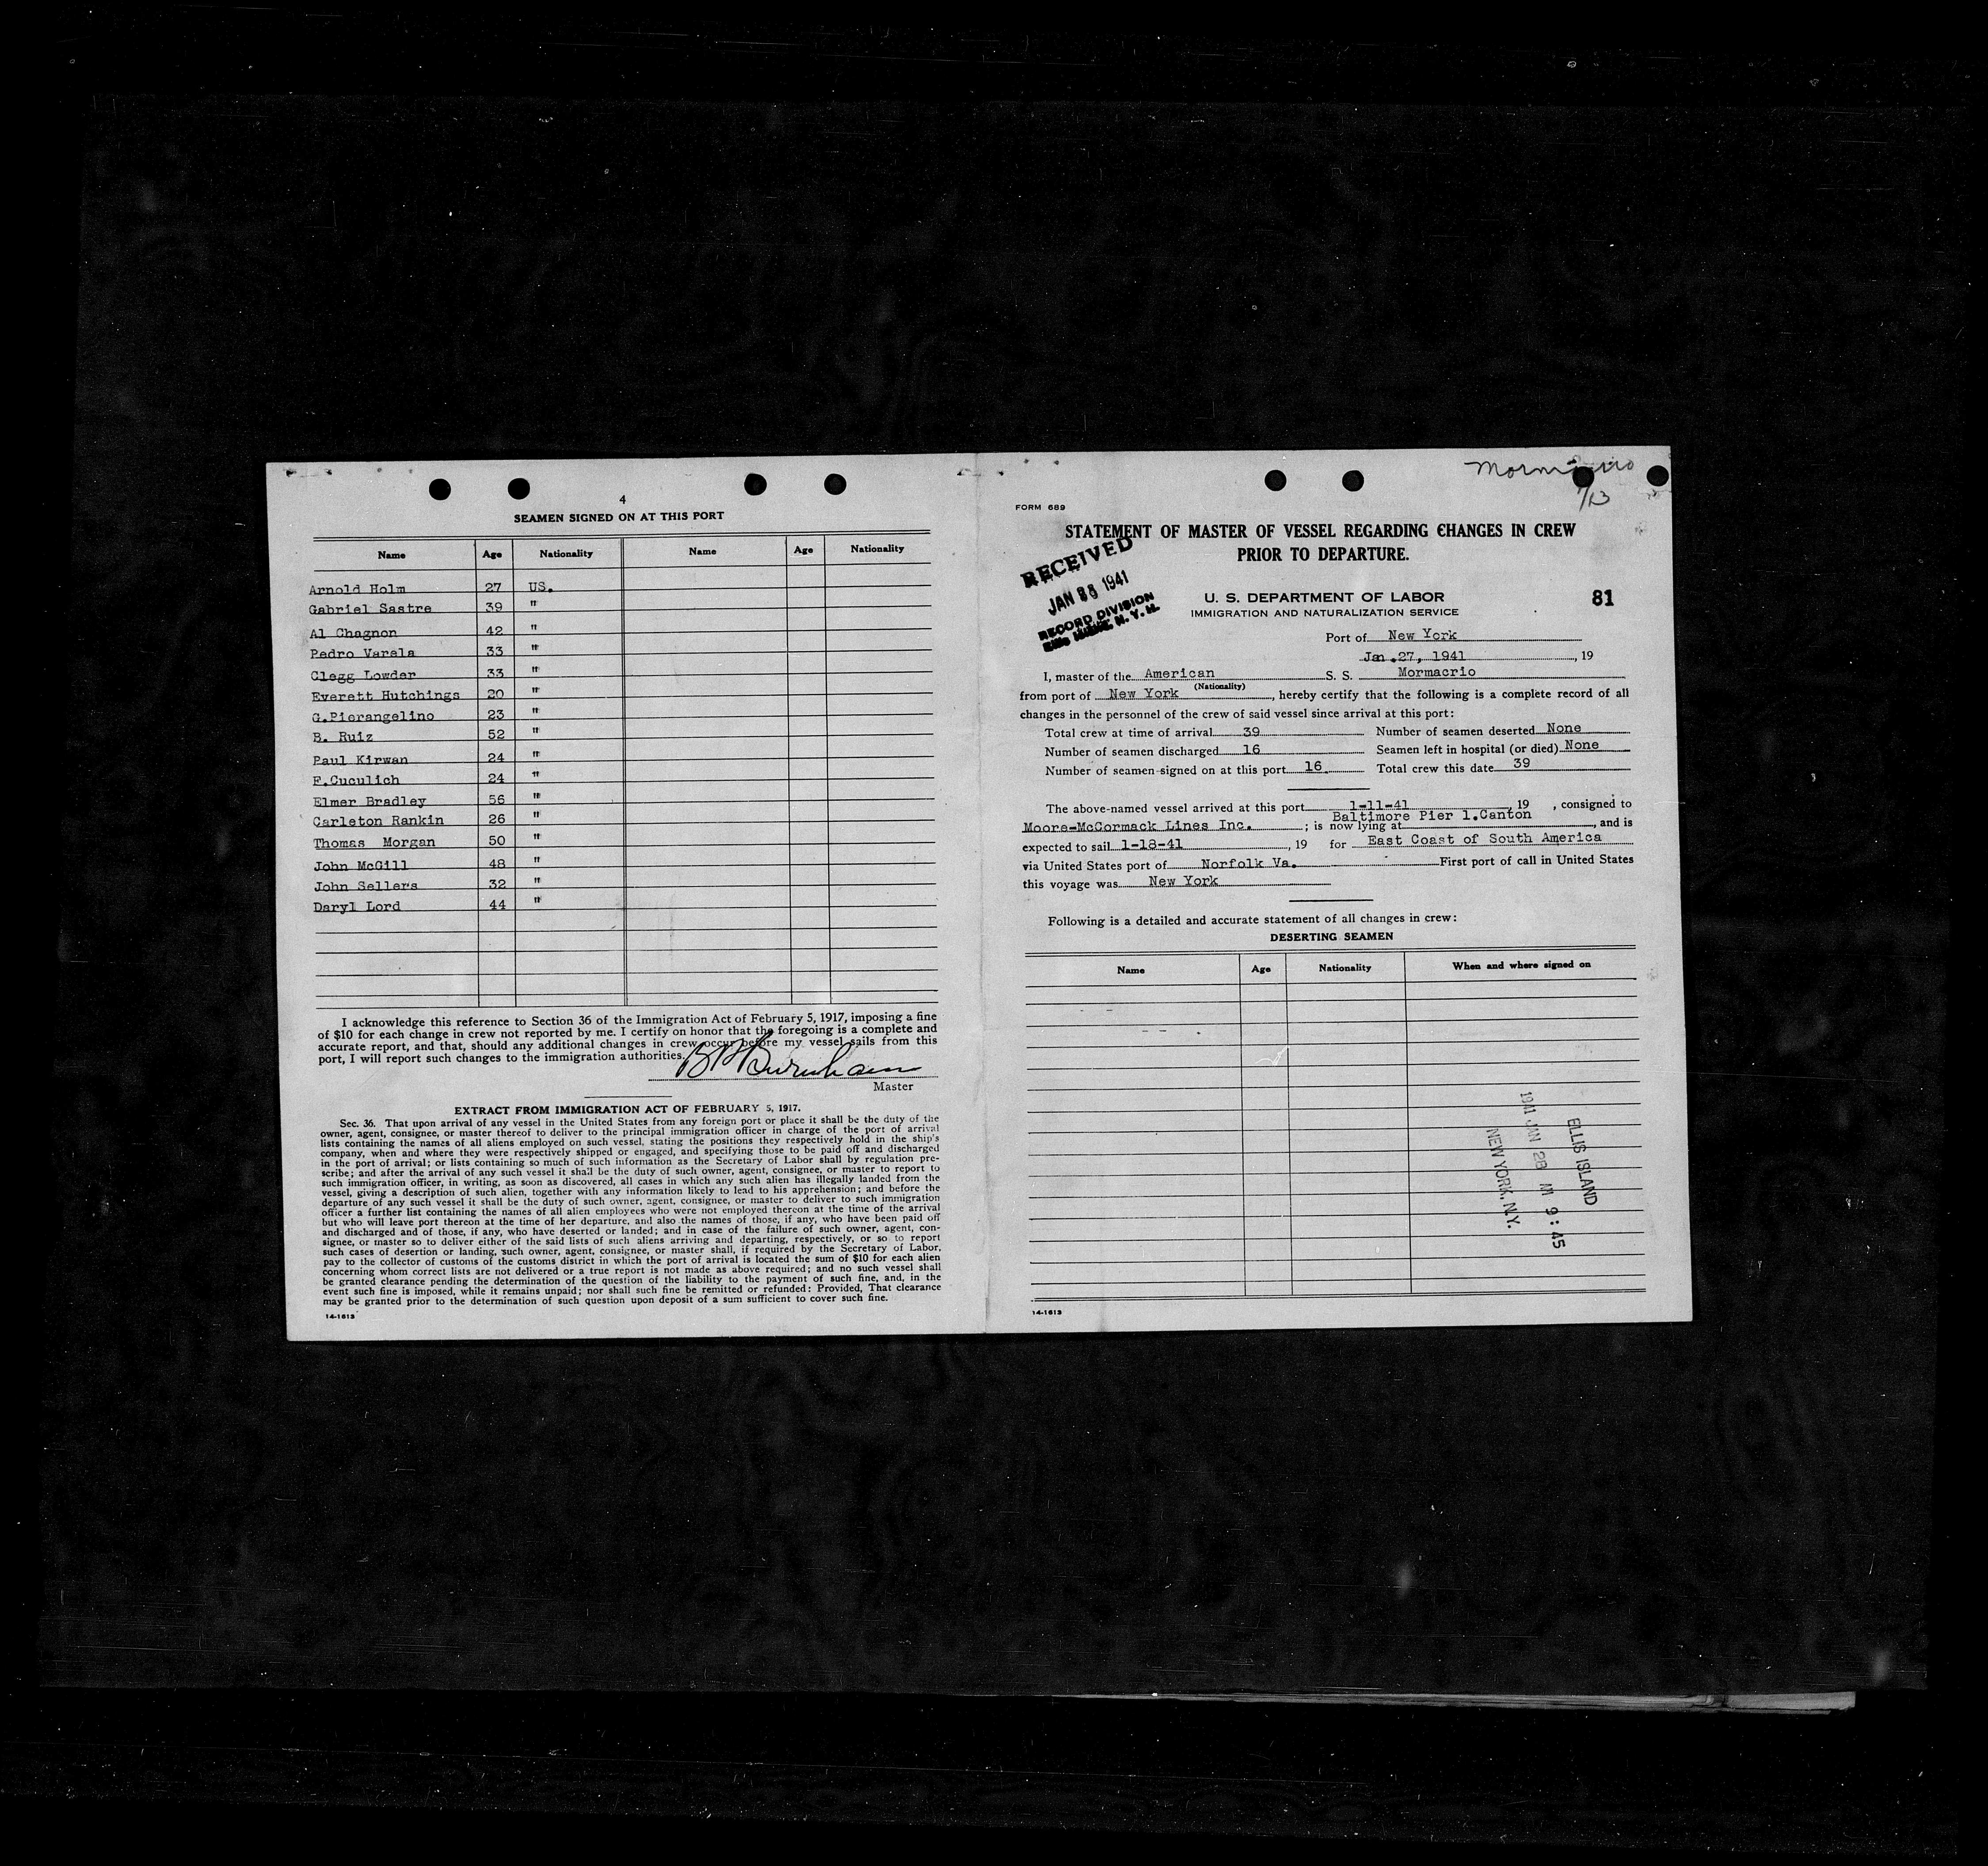 4
SEAMEN SIGNED ON AT THIS PORT
Name Age Nationality Name Age Nationality
Arnold Holm 27 US.
Gabriel Sastre 39 "
Al Chagnon 42 "
Pedro Varela 33 "
Clegg Lowder 33 "
Everett Hutchings 20 "
G.Piorangelino 23 "
B. Ruiz 52 "
Paul Kirwan 24 "
F.Cuculich 24 "
Elmer Bradley 56 "
Carleton Rankin 26 "
Thomas Morgan 50 "
John McGill 48 "
John Sellers 32 "
Daryl Lord 44 "
I acknowledge this reference to Section 36 of the Immigration Act of February 5, 1917, imposing a fine
of $10 for each change in crew not reported by me. I certify on honor that the foregoing is a complete and
accurate report, and that, should any additional changes in crew occur before my vessel sails from this
port, I will report such changes to the immigration authorities.
Burnham
Master
EXTRACT FROM IMMIGRATION ACT OF FEBRUARY 5, 1917.
Sec. 36. That upon arrival of any vessel in the United States from any foreign port or place it shall be the duty of the
owner, agent, consignee, or master thereof to deliver to the principal immigration officer in charge of the port of arrival
lists containing the names of all aliens employed on such vessel, stating the positions they respectively hold in the ship's
company, when and where they were respectively shipped or engaged, and specifying those to be paid off and discharged
in the port of arrival; or lists containing so much of such information as the Secretary of Labor shall by regulation pre-
scribe; and after the arrival of any such vessel it shall be the duty of such owner, agent, consignee, or master to report to
such immigration officer, in writing, as soon as discovered, all cases in which any such alien has illegally landed from the
vessel, giving a description of such alien, together with any information likely to lead to his apprehension; and before the
departure of any such vessel it shall be the duty of such owner, agent, consignee, or master to deliver to such immigration
officer a further list containing the names of all alien employees who were not employed thereon at the time of the arrival
but who will leave port thereon at the time of her departure, and also the names of those, if any, who have been paid off
and discharged and of those, if any, who have deserted or landed; and in case of the failure of such owner, agent, con-
signee, or master so to deliver either of the said lists of such aliens arriving and departing, respectively, or so to report
such cases of desertion or landing, such owner, agent, consignee, or master shall, if required by the Secretary of Labor,
pay to the collector of customs of the customs district in which the port of arrival is located the sum of $10 for each alien
concerning whom correct lists are not delivered or a true report is not made as above required; and no such vessel shall
be granted clearance pending the determination of the question of the liability to the payment of such fine, and, in the
event such fine is imposed, while it remains unpaid; nor shall such fine be remitted or refunded: Provided, That clearance
may be granted prior to the determination of such question upon deposit of a sum sufficient to cover such fine.
14-1613
1/13
FORM 689
STATEMENT OF MASTER OF VESSEL REGARDING CHANGES IN CREW
PRIOR TO DEPARTURE.
RECEIVED
JAN 28 1941
RECORD DIVISION
N. Y. H.
U. S. DEPARTMENT OF LABOR
IMMIGRATION AND NATURALIZATION SERVICE
81
Port of New York
Jan.27, 1941, 19
I, master of the American S. S. Mormacrio
(Nationality)
from port of New York, hereby certify that the following is a complete record of all
changes in the personnel of the crew of said vessel since arrival at this port:
Total crew at time of arrival 39 Number of seamen deserted None
Number of seamen discharged 16 Seamen left in hospital (or died) None
Number of seamen signed on at this port 16 Total crew this date 39
The above-named vessel arrived at this port 1-11-41, 19 , consigned to
Baltimore Pier 1.Canton
Moore-McCormack Lines Inc. ; is now lying at , and is
expected to sail 1-18-41, 19 for East Coast of South America
via United States port of Norfolk Va. First port of call in United States
this voyage was New York
Following is a detailed and accurate statement of all changes in crew:
DESERTING SEAMEN
Name Age Nationality When and where signed on
ELLIS ISLAND
1941 JAN 28 AM 9:45
NEW YORK, N.Y.
14-1613